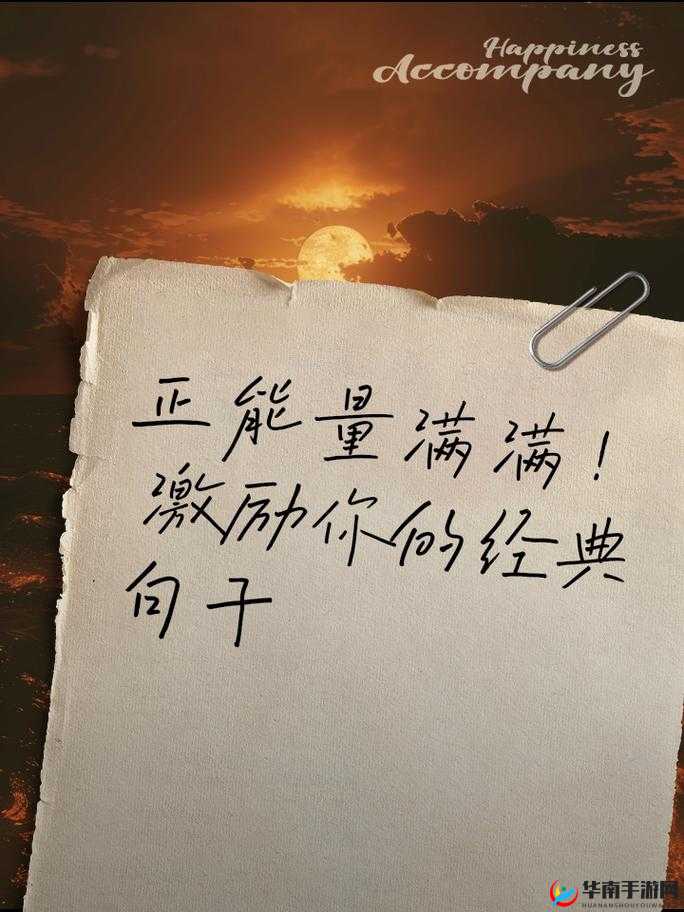 Happiness
Accompany
正能量满满！
激励你的经典
句子
华南手游网
HUANANSHOUYOUWANG